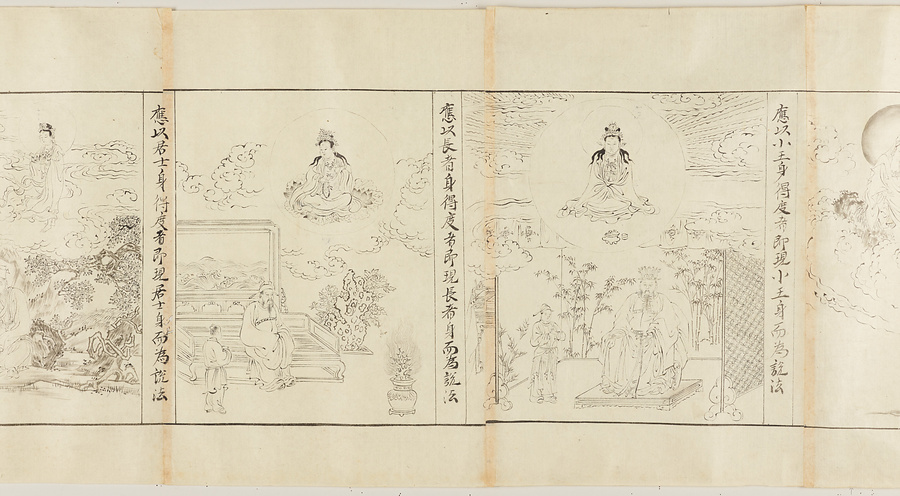 應以小王身得度者即現小王身而為說法
應以長者身得度者即現長者身而為說法
應以居士身得度者即現居士身而為說法